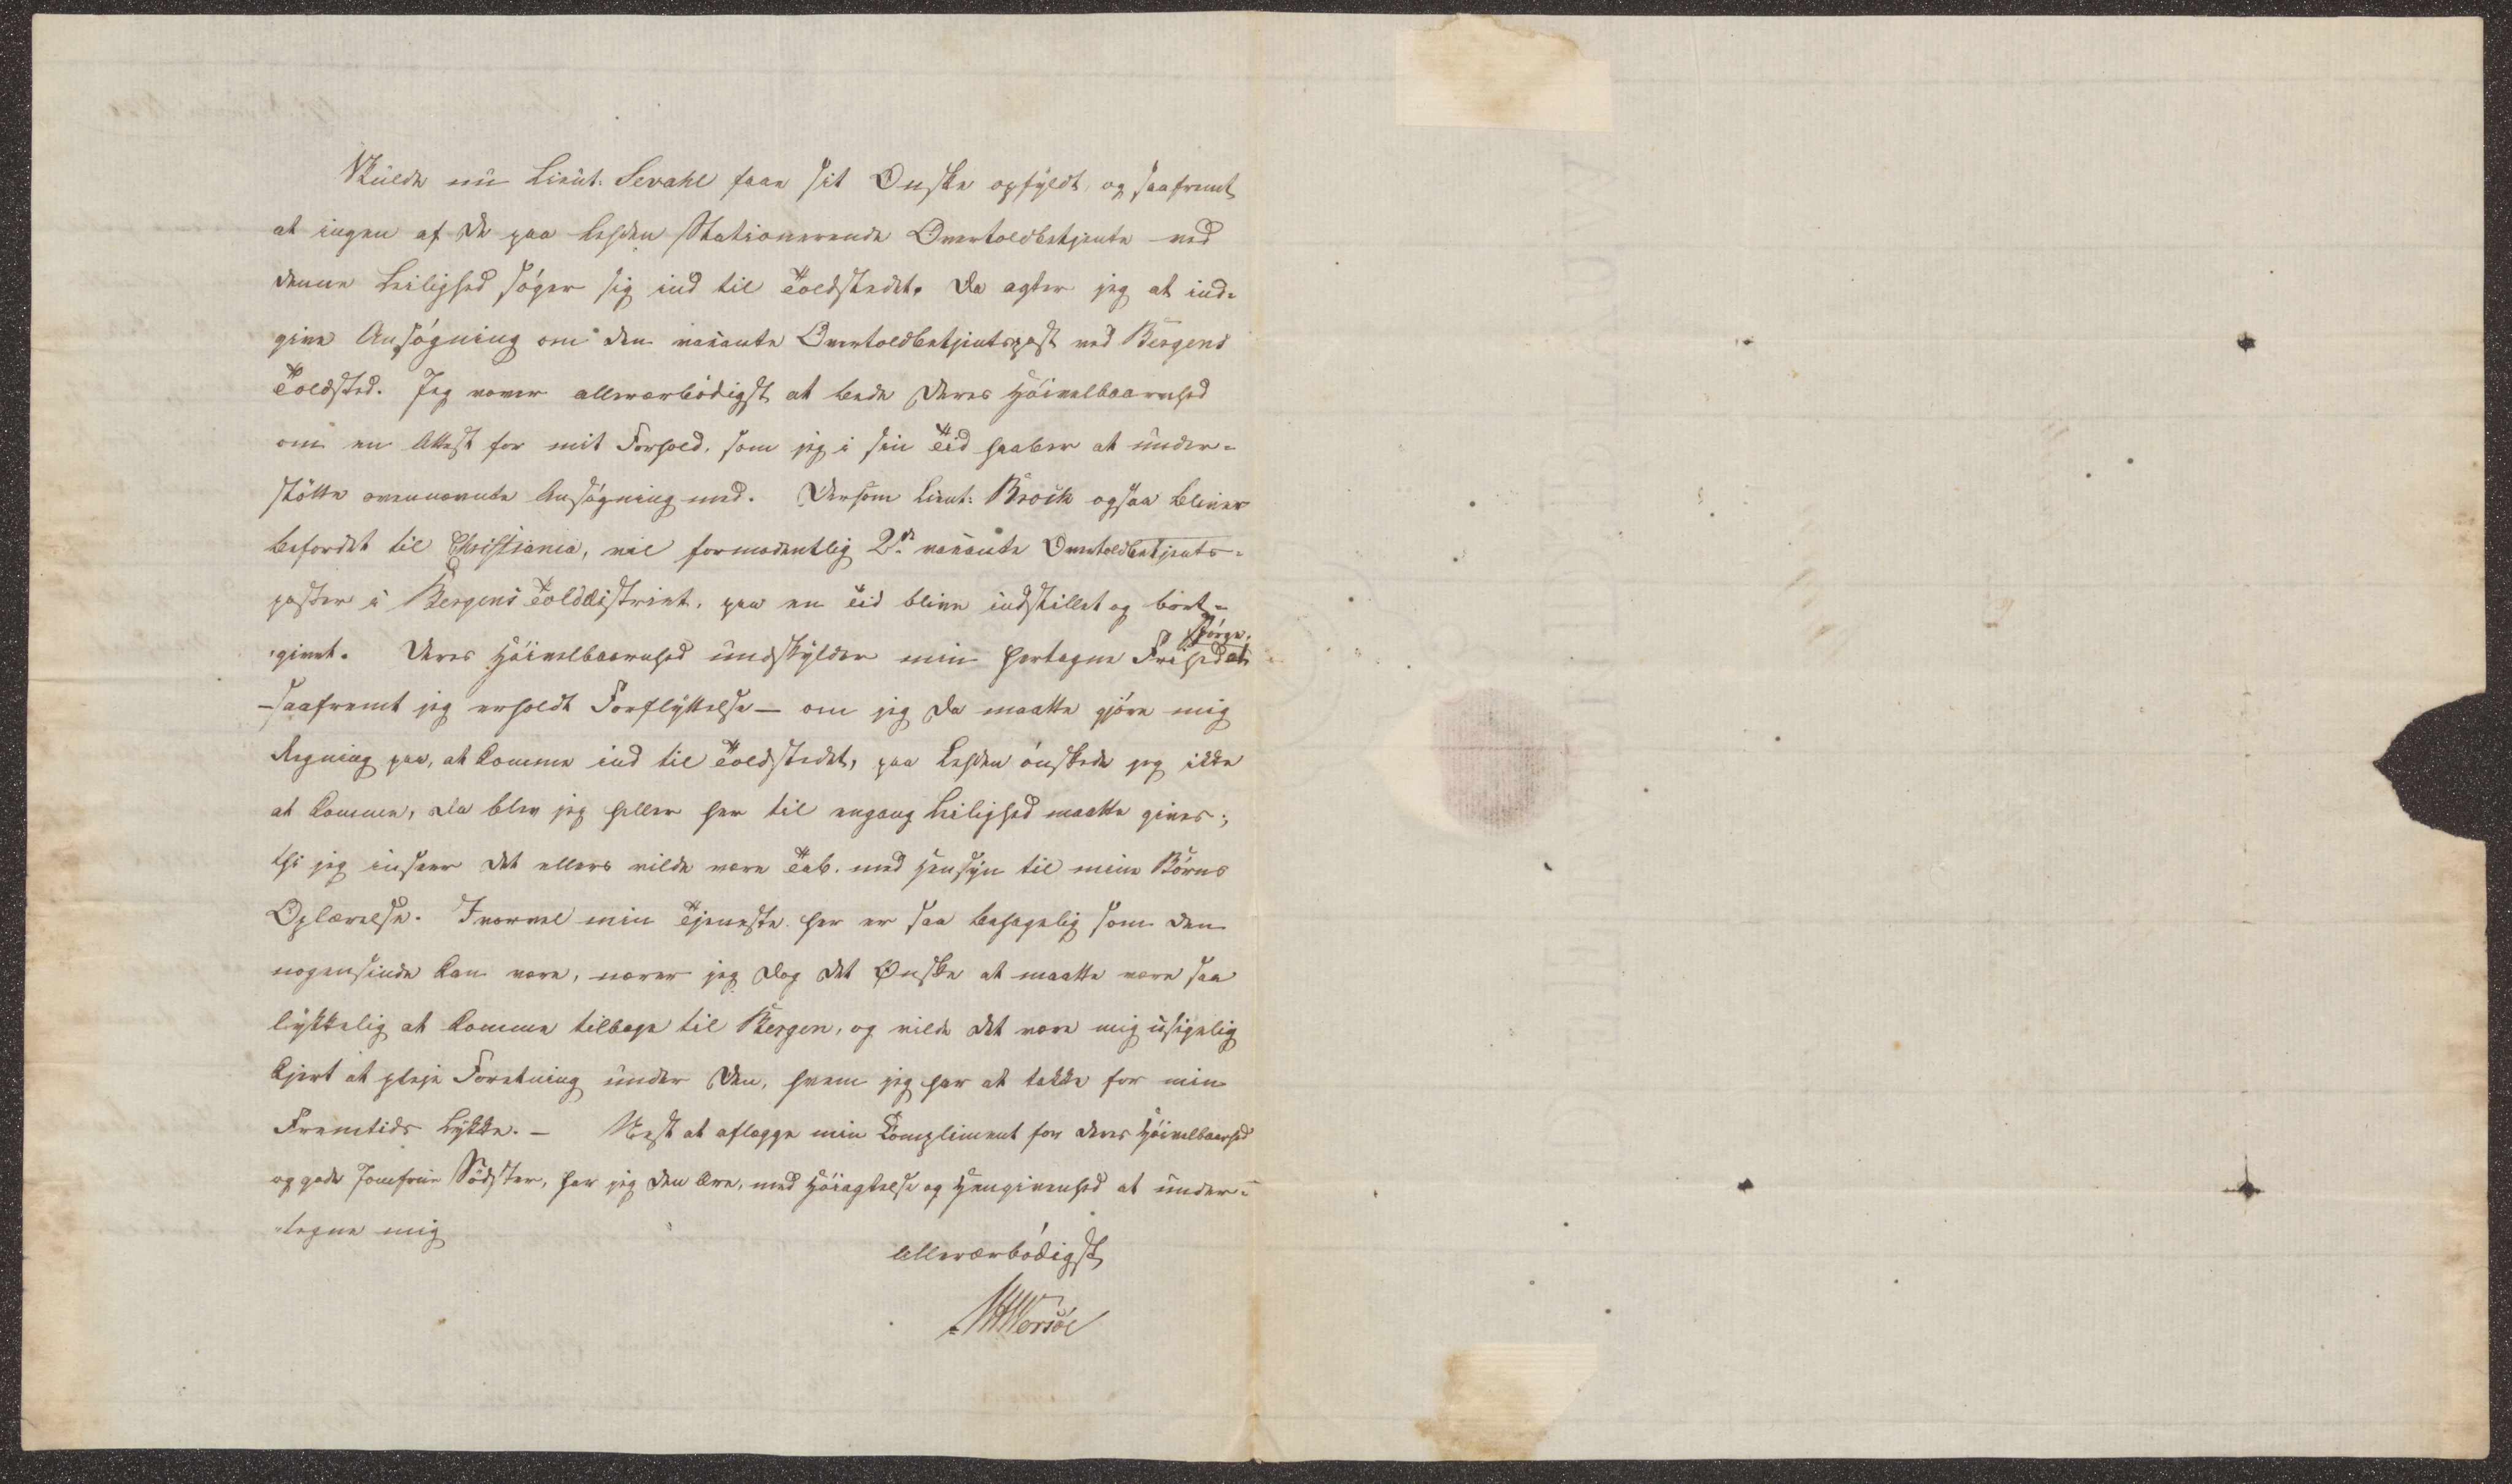 Skulde nu Lieut: Sevahl faae sit Ønske opfyldt, og saafremt
at ingen af de paa Leyden Stationerende Overtoldbetjente ved
denne Leilighed søger sig ind til Toldstedet, da agter jeg at ind-
give Ansøgning om den vacante Overtoldbetjentspost ved Bergens
Toldsted. Jeg vover allerærbødigst at bede Deres Høivelbaarenhed
om en Attest for mit Forhold, som jeg i sin Tid haaber at under-
støtte ovennævnte Ansøgning med. Dersom Lieut: Brock ogsaa bliver
befordret til Christiania, vil formodentlig 2de vacante Overtoldbetjents-
poster i Bergens Tolddistrict, paa en Tid blive indstillet og bort-
givet. Deres Høivelbaarenhed undskylder min fortagne Frihed at
spørge,
- saafremt jeg erholdt Forflyttelse - om jeg da maatte gjøre mig
Regning paa, at komme ind til Toldstedet, paa Leyden ønskede jeg ikke
at komme, da blev jeg heller her til engang Leilighed maatte gives;
thi jeg indseer det ellers vilde være Tab, med Hensyn til mine Børns
Oplærelse. Ihvorvel min Tjeneste her er saa behagelig som den
nogensinde kan være, nærer jeg dog det Ønske at maatte være saa
lykkelig at komme tilbage til Bergen, og vilde det være mig usigelig
kjert at pleje Foretning under Den, hvem jeg har at takke for min
Fremtids Lykke. - Næst at aflægge min Compliment for Deres Høivelbaarhed
og gode Jomfrue Södster, har jeg den Ære, med Høiagtelse og Hengivenhed at under-
tegne mig
Allerærbödigst
Worsöe